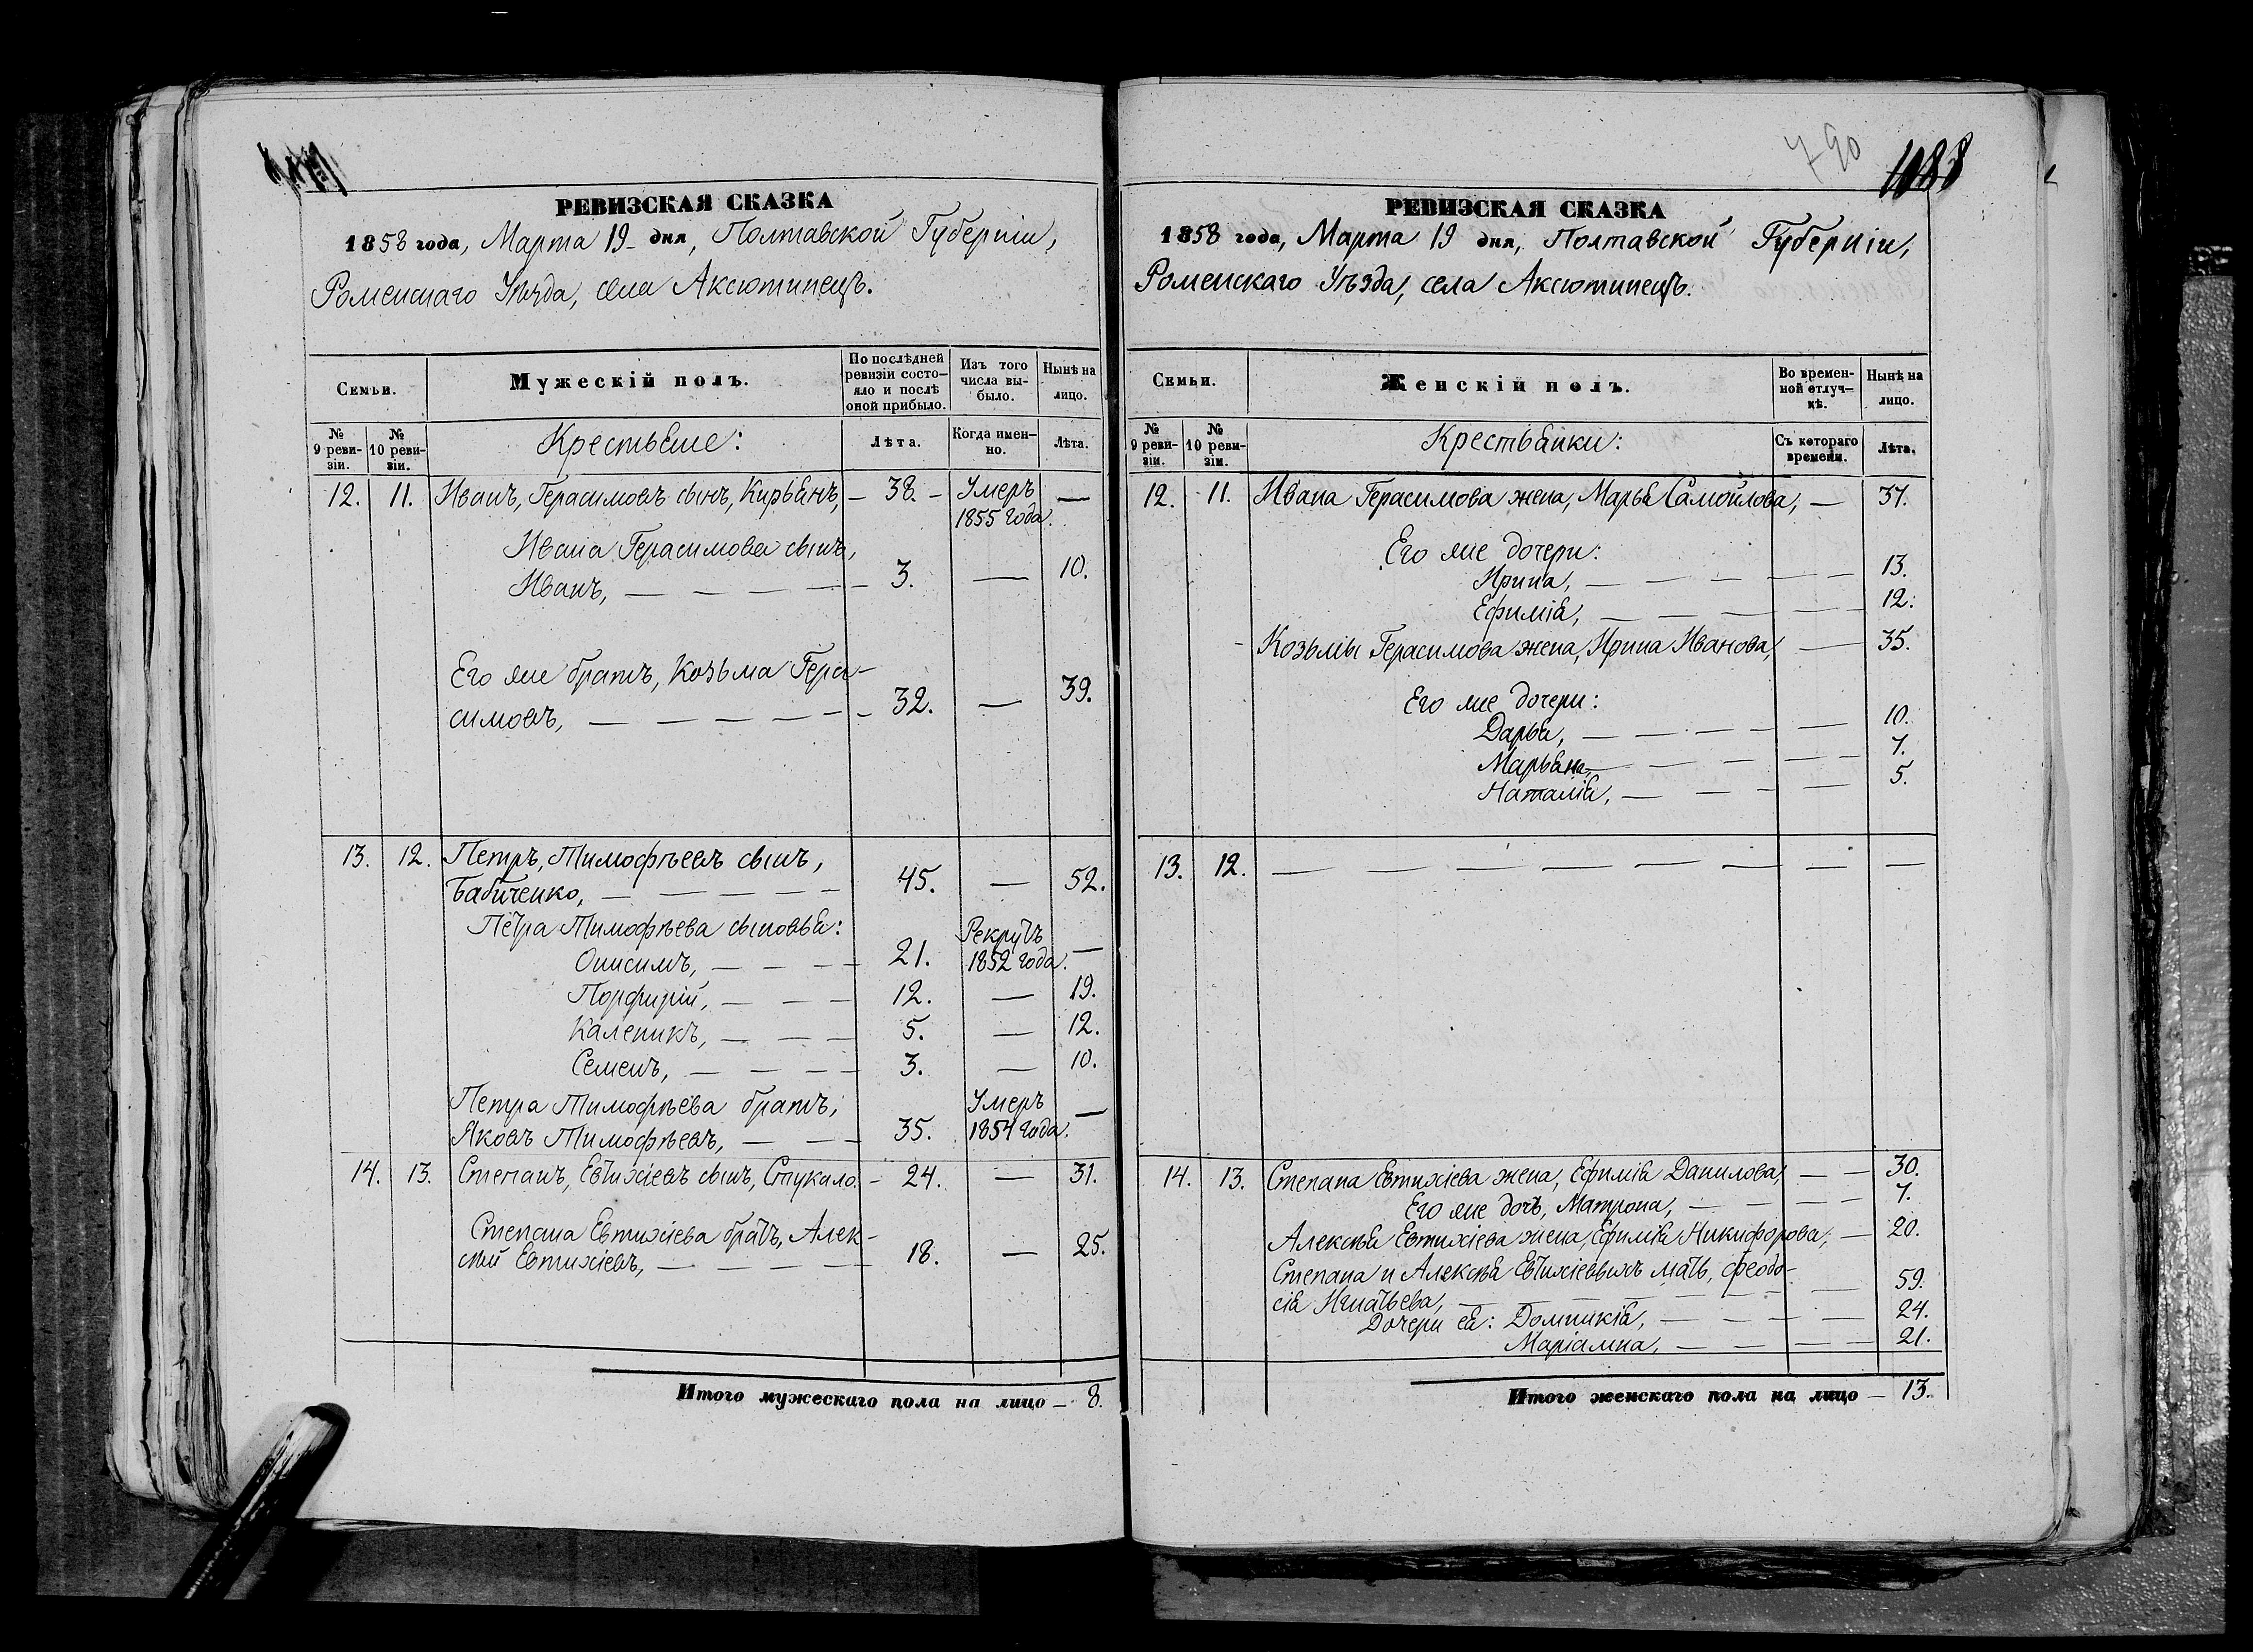 РЕВИЗСКАЯ СКАЗКА
1858 года, Марта 19 дня, Полтавской Губерніи,
Роменскаго Уѣзда, села Аксютинецъ.
Семьи.
Мужескій полъ.
По послѣдней ревизіи состо-
яло и послѣ оной прибыло.
Изъ того числа вы-
было.
Нынѣ на лицо.
№ 9 реви-
зіи.
№ 10 реви-
зіи.
Крестьяне:
Лѣта.
Когда имен-
но.
Лѣта.
12. 11. Иванъ, Герасимовъ сынъ, Кирьянъ, — 38. — Умеръ —
1855 года.
Ивана Герасимова сынъ,
Иванъ, — — — — — 3. — 10.
Его же братъ, Козьма Гера-
симовъ, — — — — — — 32. — 39.
13. 12. Петръ, Тимофѣевъ сынъ,
Бабиченко, — — — — — 45. — 52.
Петра Тимофѣева сыновья:
Онисимъ, — — — — 21. Рекрутъ 1852 года. —
Порфирій, — — — 12. — 19.
Каленикъ, — — — 5. — 12.
Семенъ, — — — — 3. — 10.
Петра Тимофѣева братъ,
Яковъ Тимофѣевъ, — — — 35. Умеръ 1854 года. —
14. 13. Степанъ, Евтихіевъ сынъ, Стукало. — 24. — 31.
Степана Евтихіева братъ, Алек-
сѣй Евтихіевъ, — — — — — 18. — 25.
Итого мужескаго пола на лицо — 8.
790
1088
РЕВИЗСКАЯ СКАЗКА
1858 года, Марта 19 дня, Полтавской Губерніи,
Роменскаго Уѣзда, села Аксютинецъ.
Семьи.
Женскій полъ.
Во времен-
ной отлуч-
кѣ.
Нынѣ на лицо.
№ 9 реви-
зіи.
№ 10 реви-
зіи.
Крестьянки:
Съ котораго времени.
Лѣта.
12. 11. Ивана Герасимова жена, Марья Самойлова, — 37.
Его же дочери:
Ирина, — — — — — — 13.
Ефимія, — — — — — 12.
Козьмы Герасимова жена, Ирина Иванова, — 35.
Его же дочери:
Дарья, — — — — — — 10.
Марьяна, — — — — — 7.
Наталія, — — — — — 5.
13. 12. — — — — — — — — —
14. 13. Степана Евтихіева жена, Ефимія Данилова, — — 30.
Его же дочь, Матрона, — — — — 7.
Алексѣя Евтихіева жена, Ефимія Никифорова, — 20.
Степана и Алексѣя Евтихіевыхъ мать, Феодо-
сія Игнатьева, — — — — — — — 59.
Дочери ея: Домникія, — — — — 24.
Маріамна, — — — — 21.
Итого женскаго пола на лицо — 13.